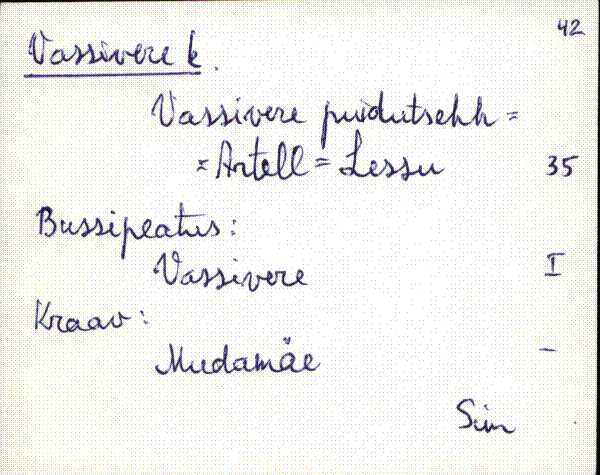 42
Vassivere k.
Vassivere puidutsehh =
= Artell = Lessu 35
Bussipeatus:
Vassivere I
Kraav:
Mudamäe —